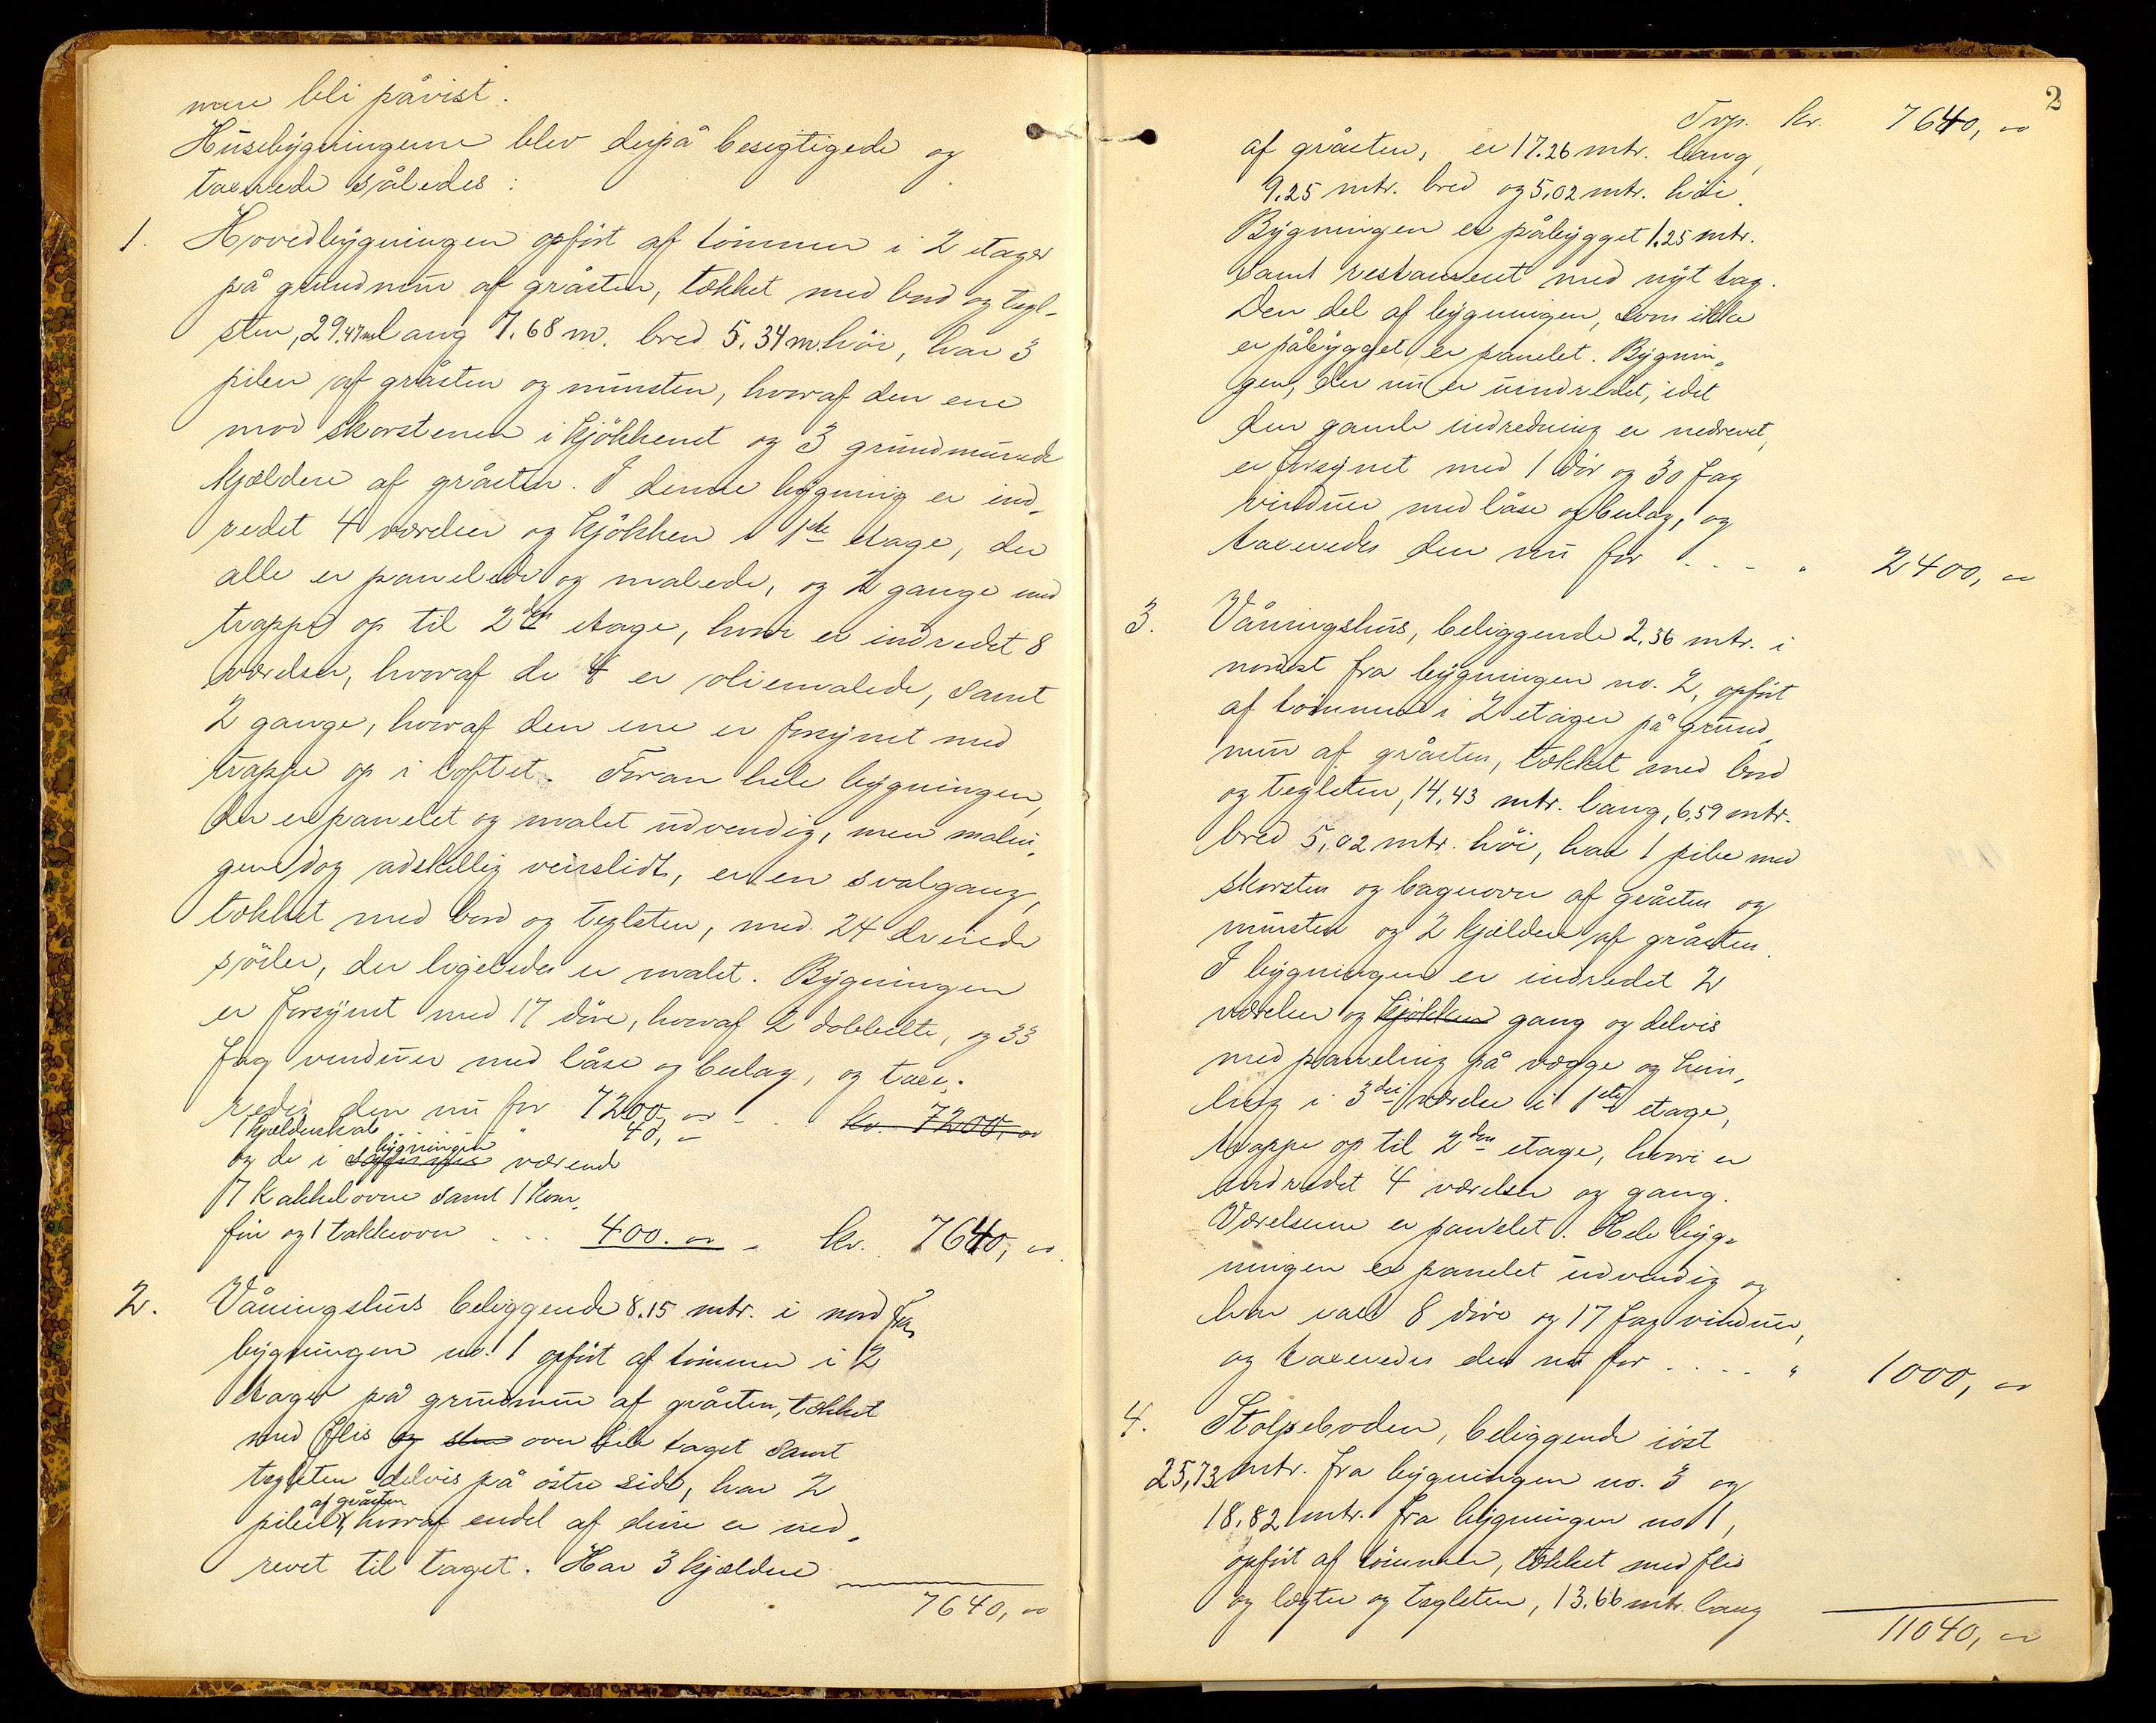 mere bli påvist.
Husebygningerne blev derpå besigtigede og
taxerede således:
1. Hovedbygningen opført af tømmer i 2 etager
på grundmur af gråsten, tækket med bord og tegl-
sten, 29.47 m lang 7.68 m. bred 5.34 m. høi, har 3
piber af gråsten og mursten, hvoraf den ene
med skorstenen i kjøkkenet og 3 grundmurede
kjældere af gråsten. I denne bygning er ind-
redet 4 værelser og kjøkken i 1ste etage, der
alle er panelede og malede, og 2 gange med
trappe op til 2den etage, hvor er indredet 8
værelser, hvoraf de 4 er oliemalede, samt
2 gange, hvoraf den ene er forsynet med
trappe op i loftet. Foran hele bygningen,
der er panelet og malet udvendig, men malin-
gen dog adskillig veirslidt, er en svalgang,
tækket med bord og teglsten, med 24 dreiede
søiler, der ligeledes er malet. Bygningen
er forsynet med 17 døre, hvoraf 2 dobbelte, og 33
fag vinduer med låse og beslag, og taxe-
redes den nu for 7200,00 - . kr. 7200,00
1 kjælderskab " 40,-
og de i bygningen værende
7 kakkelovne samt 1 kom-
fur og 1 takkeovn ... 400.00 - kr. 7640,00
2. Våningshus beliggende 8.15 mtr. i nord fra
bygningen no. 1 opført af tømmer i 2
etager på grundmur af gråsten, tækket
med flis og sten over hele taget samt
teglsten delvis på østre side, har 2
piber af gråsten, hvoraf endel af den ene er ned-
revet til taget. Har 3 kjældere
7640,00
2
Trp. kr. 7640,00
af gråsten, er 17.26 mtr. lang,
9.25 mtr. bred og 5.02 mtr. høi.
Bygningen er påbygget 1.25 mtr.
samt restaureret med nyt tag.
Den del af bygningen, som ikke
er påbygget, er panelet. Bygnin-
gen, der nu er uindredet, idet
den gamle indredning er nedrevet,
er forsynet med 1 dør og 30 fag
vinduer med låse og beslag, og
taxeredes den nu for . . - " 2400,00
3. Våningshus, beliggende 2.36 mtr. i
nordøst fra bygningen no. 2, opført
af tømmer i 2 etager på grund-
mur af gråsten, tækket med bord
og teglsten, 14,43 mtr. lang, 6.59 mtr.
bred 5,02 mtr. høi, har 1 pibe med
skorsten og bagerovn af gråsten og
mursten og 2 kjældere af gråsten.
I bygningen er indredet 2
værelser og kjøkken gang og delvis
med paneling på vægge og him-
ling i 3die værelse i 1ste etage,
trappe op til 2den etage, hvori er
indredet 4 værelser og gang.
Værelserne er panelet. Hele byg-
ningen er panelet udvendig og
har ialt 8 døre og 17 fag vinduer,
og taxeredes den nu for . . . . " 1000,00
4. Stolpeboden, beliggende i øst
25,73 mtr. fra bygningen no. 3 og
18.82 mtr. fra bygningen no 1,
opført af tømmer, tækket med flis
og lægter og teglsten, 13.66 mtr. lang
11040,00